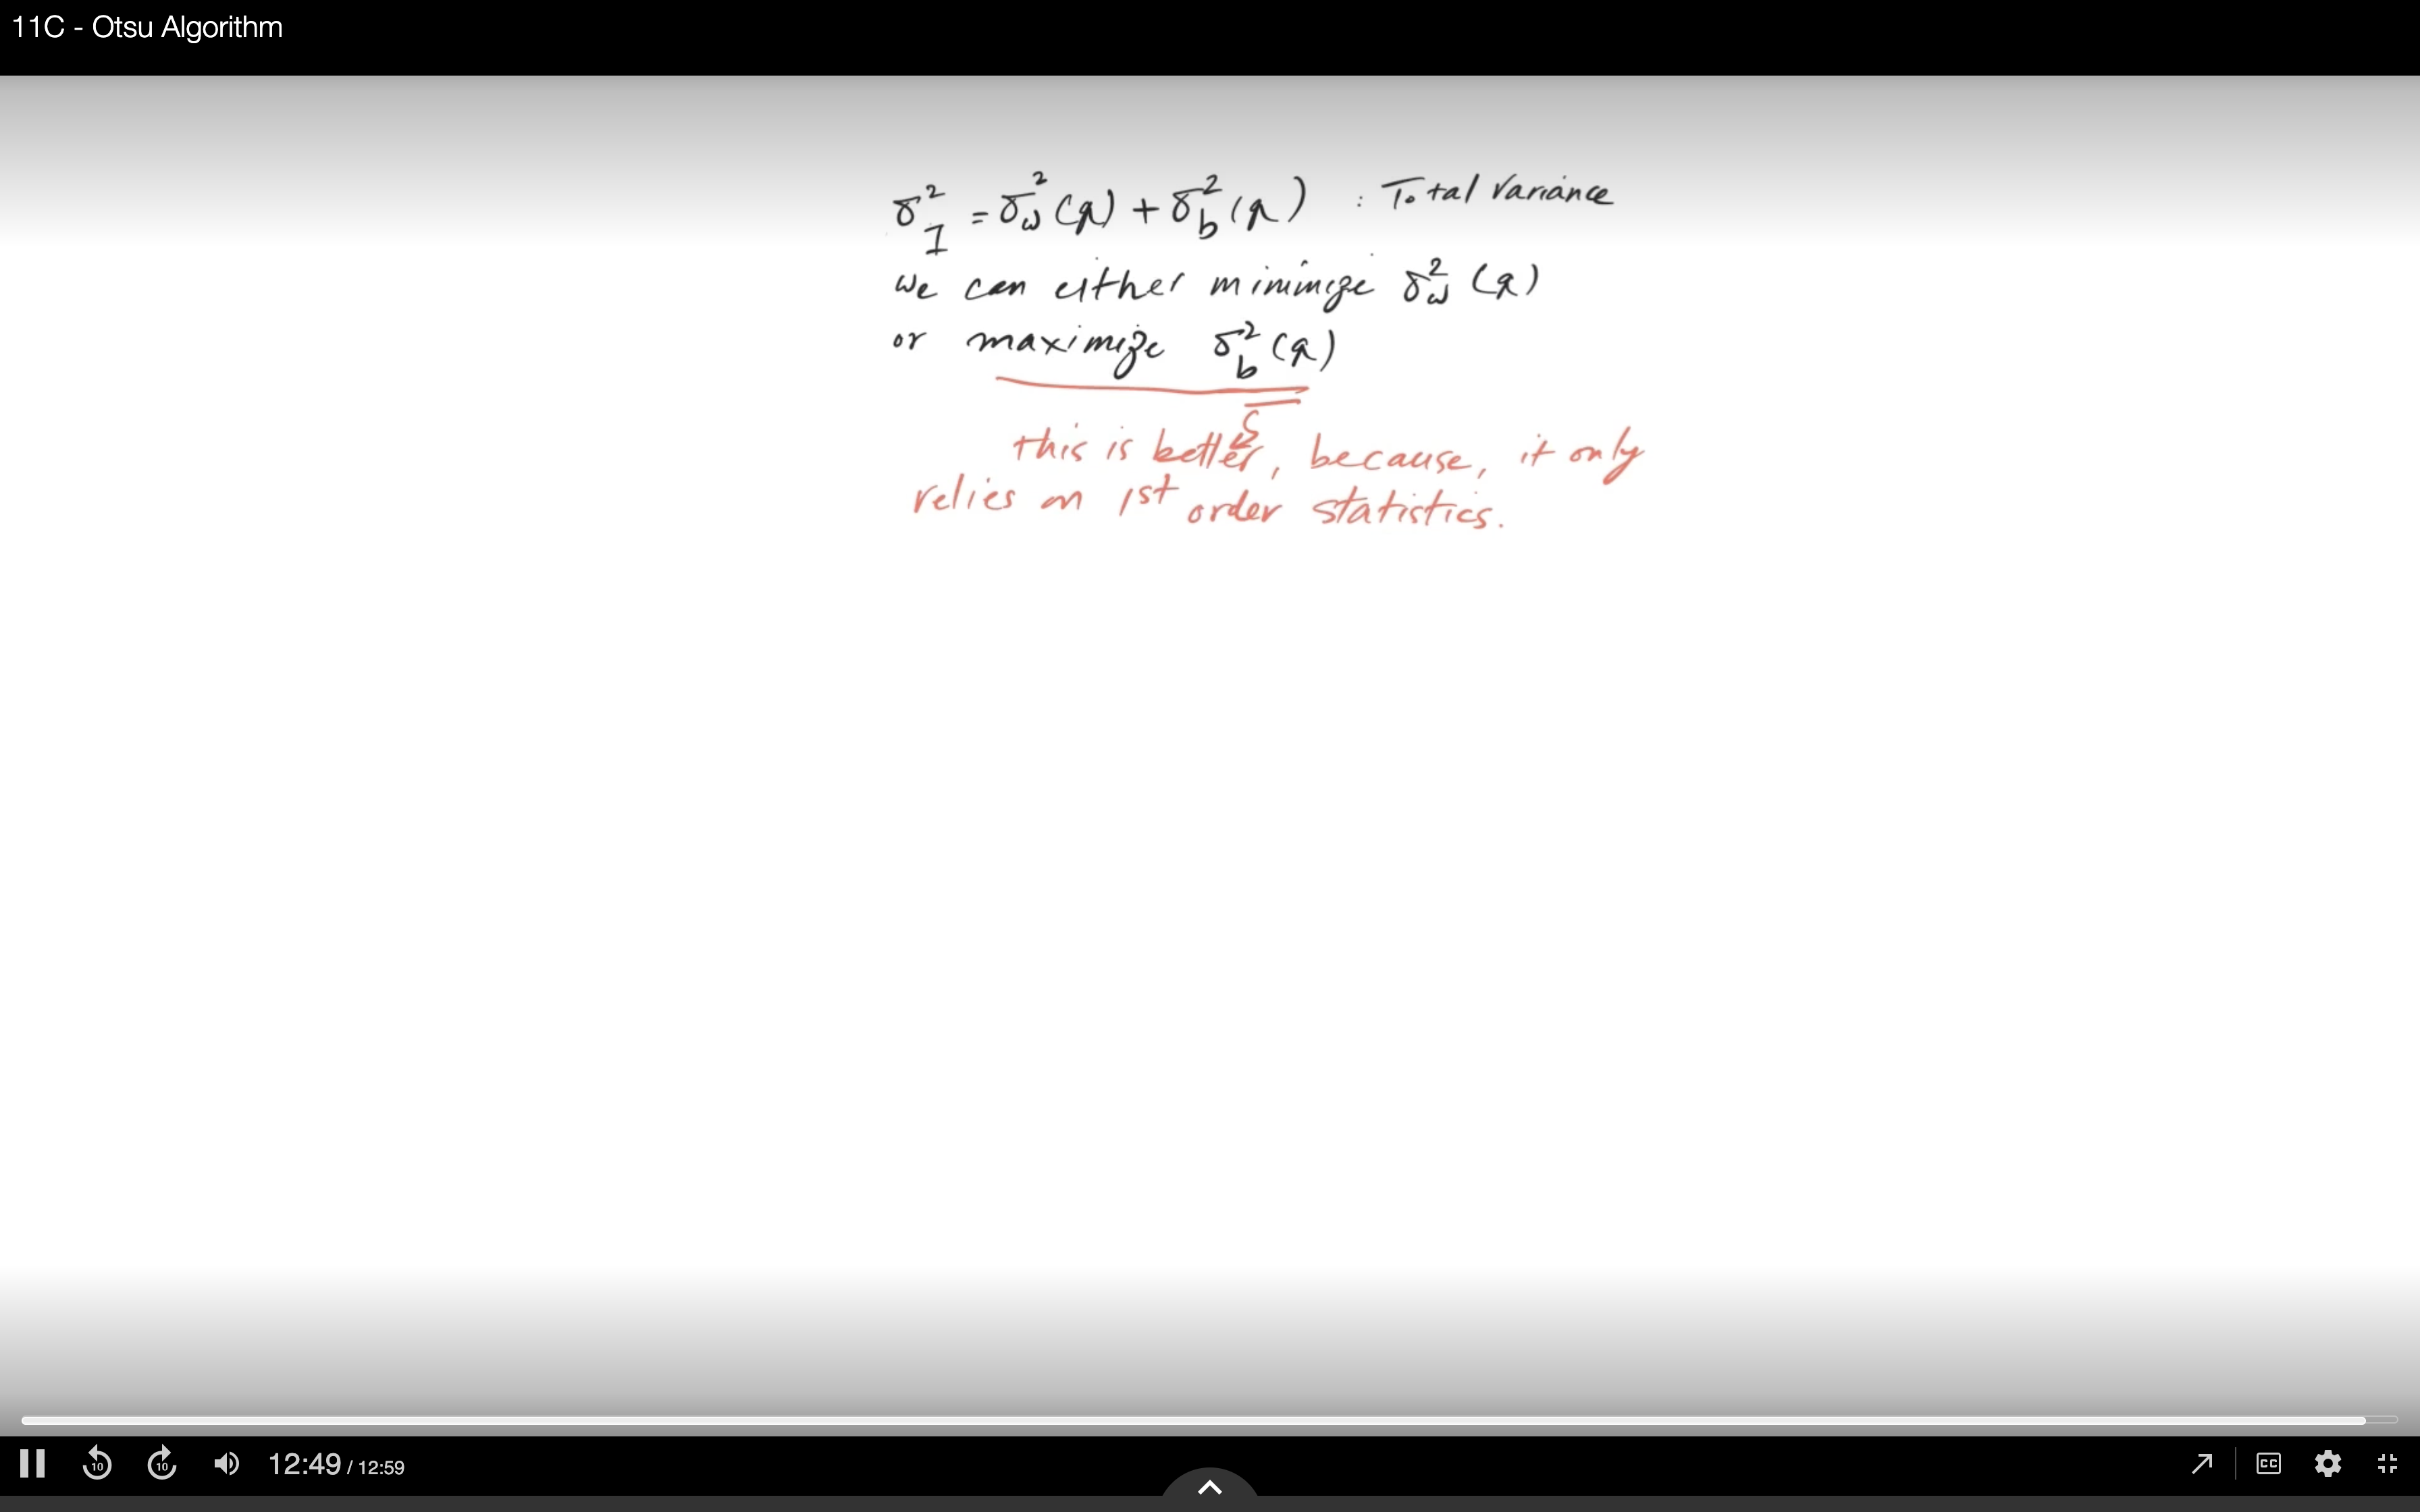 11C - Otsu Algorithm
σ²_I = σ²_w (q) + σ²_b (q) : Total Variance
we can either minimize σ²_w (q)
or maximize σ²_b (q)
this is better, because, it only
relies on 1st order statistics.
10 10 12:49 / 12:59 CC